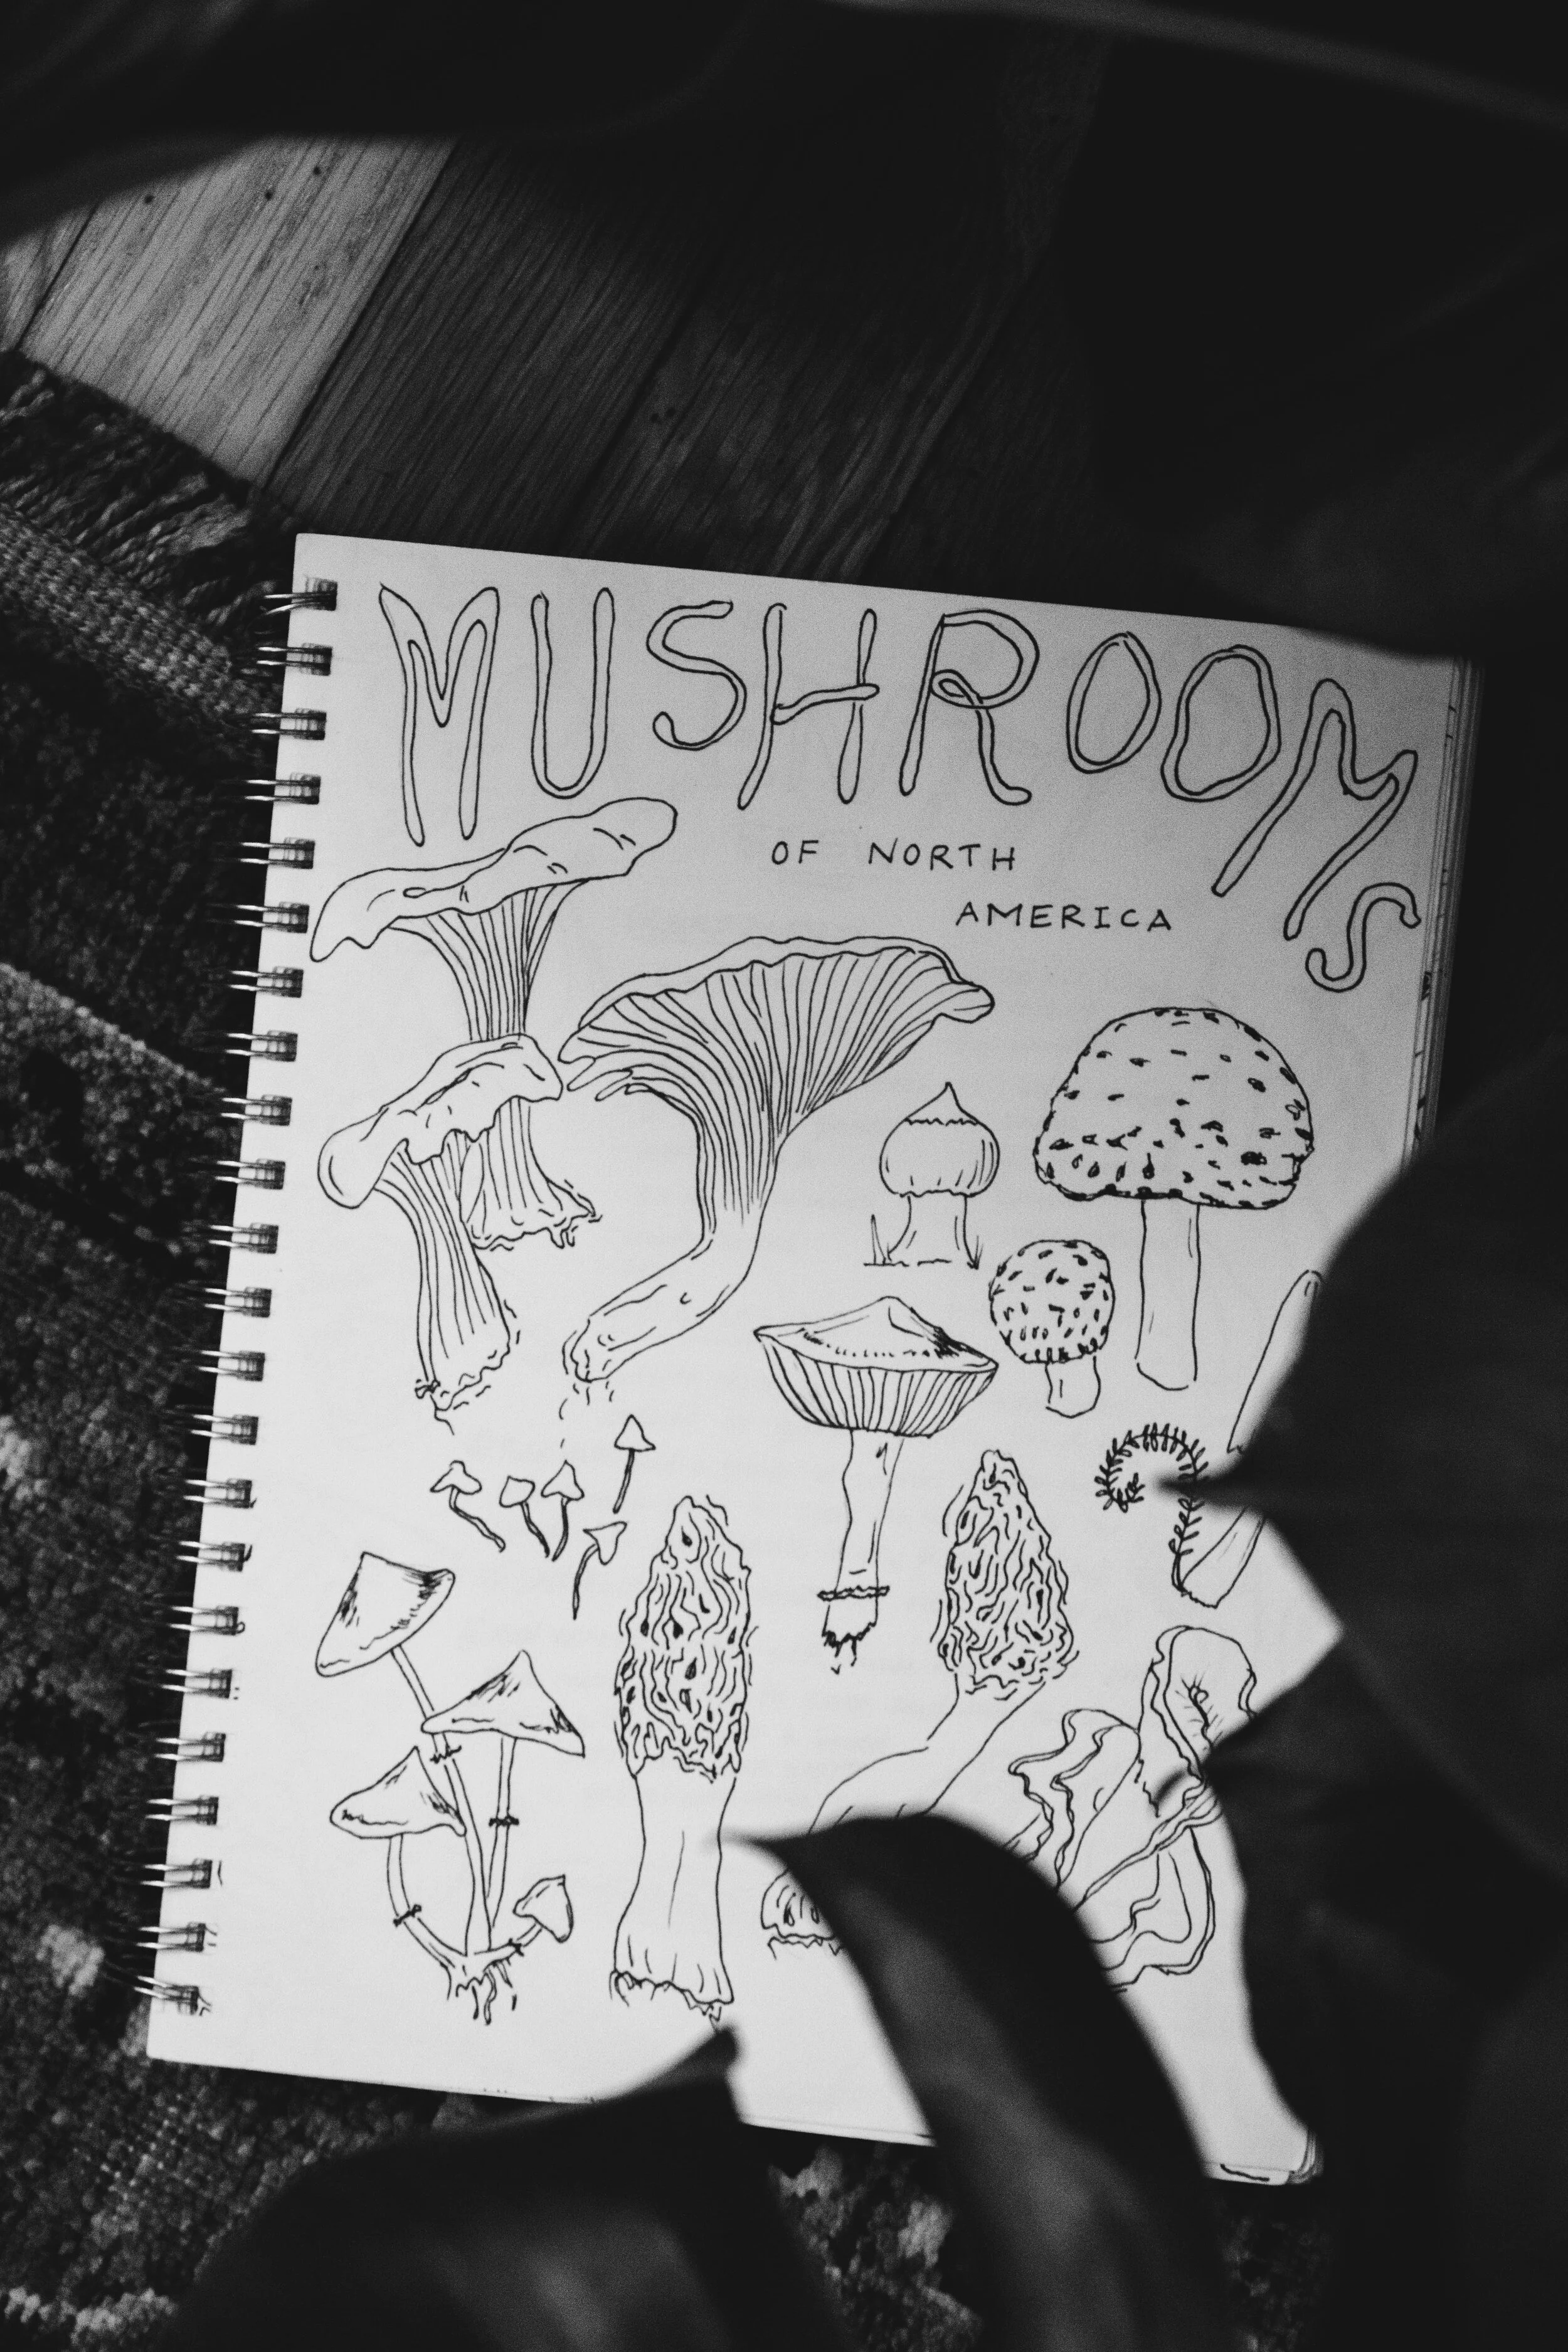 MUSHROOMS
OF NORTH
AMERICA